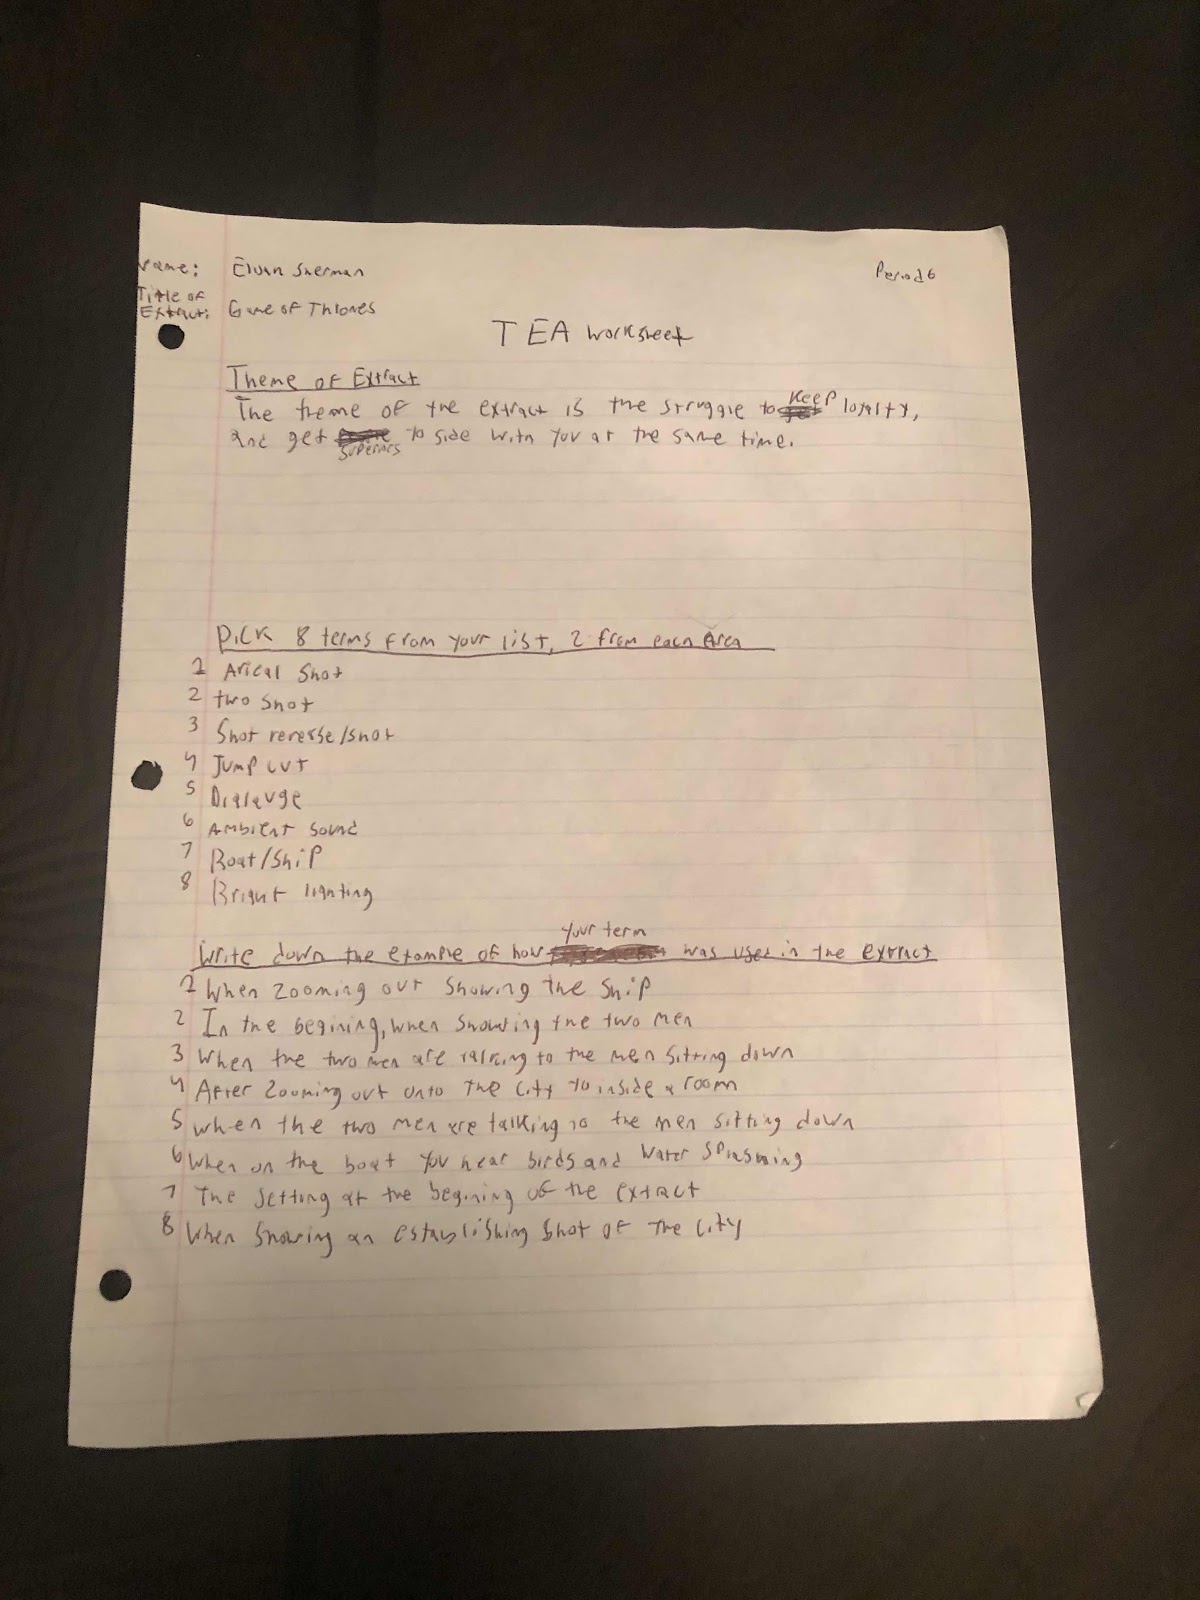 Name: Eluan Sherman Period 6
Title of
Extract: Game of Thrones
TEA Worksheet
Theme of Extract
The theme of the extract is the struggle to keep loyalty,
and get superiors to side with you at the same time.
Pick 8 terms from your list, 2 from each Area
1 Arieal Shot
2 two shot
3 Shot reverse/shot
4 Jump cut
5 Dialauge
6 Ambient sound
7 Boat/Ship
8 Bright lighting
Write down the example of how your term was used in the extract
1 When zooming out showing the ship
2 In the begining, when showing the two men
3 When the two men are talking to the men sitting down
4 After zooming out onto the city to inside a room
5 When the two men are talking to the men sitting down
6 When on the boat you hear birds and water splashing
7 The setting at the begining of the extract
8 When showing an establishing shot of the city